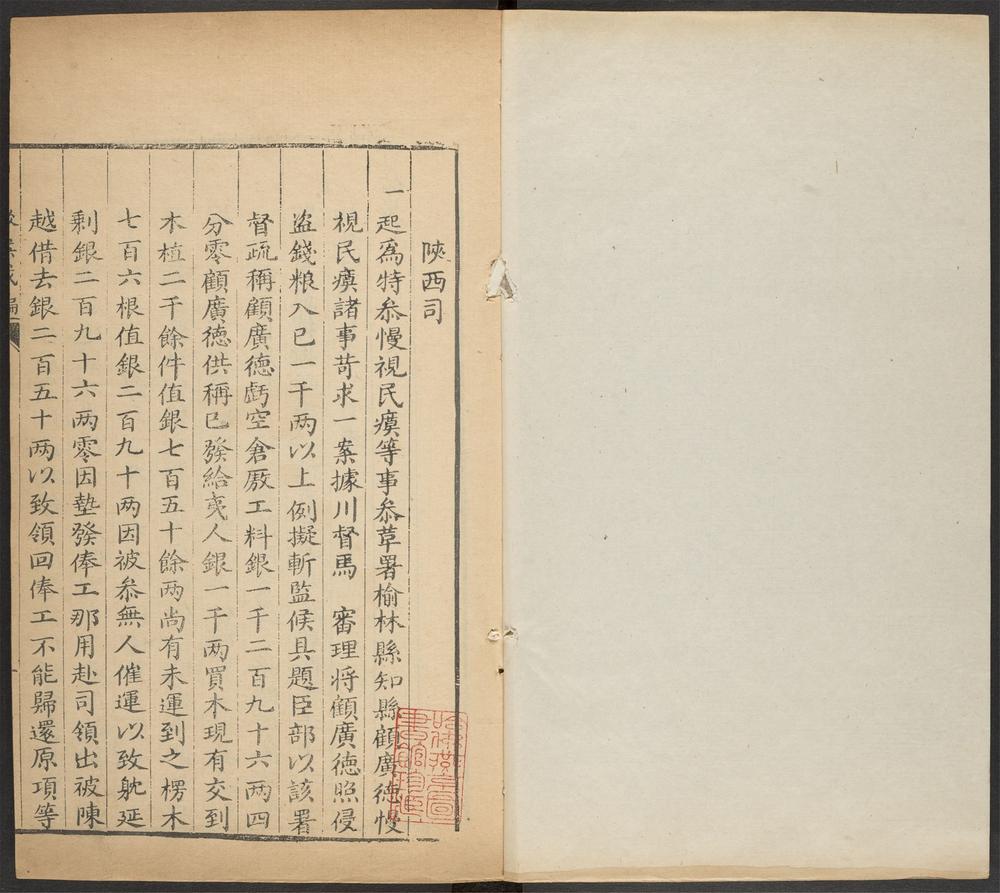 陝西司
一起為特叅慢視民瘼等事叅革署榆林縣知縣顧廣德慢
視民瘼諸事苛求一案據川督馬　審理將顧廣德照侵
盗錢粮入己一千两以上例擬斬監候具題臣部以該署
督疏稱顧廣德虧空倉厫工料銀一千二百九十六两四
分零顧廣德供稱已發給夷人銀一千两買木現有交到
木植二千餘件值銀七百五十餘两尚有未運到之楞木
七百六根值銀二百九十两因被叅無人催運以致躭延
剩銀二百九十六两零因墊發俸工那用赴司領出被陳
越借去銀二百五十两以致領回俸工不能歸還原項等
哈佛燕京圖書館珍藏印